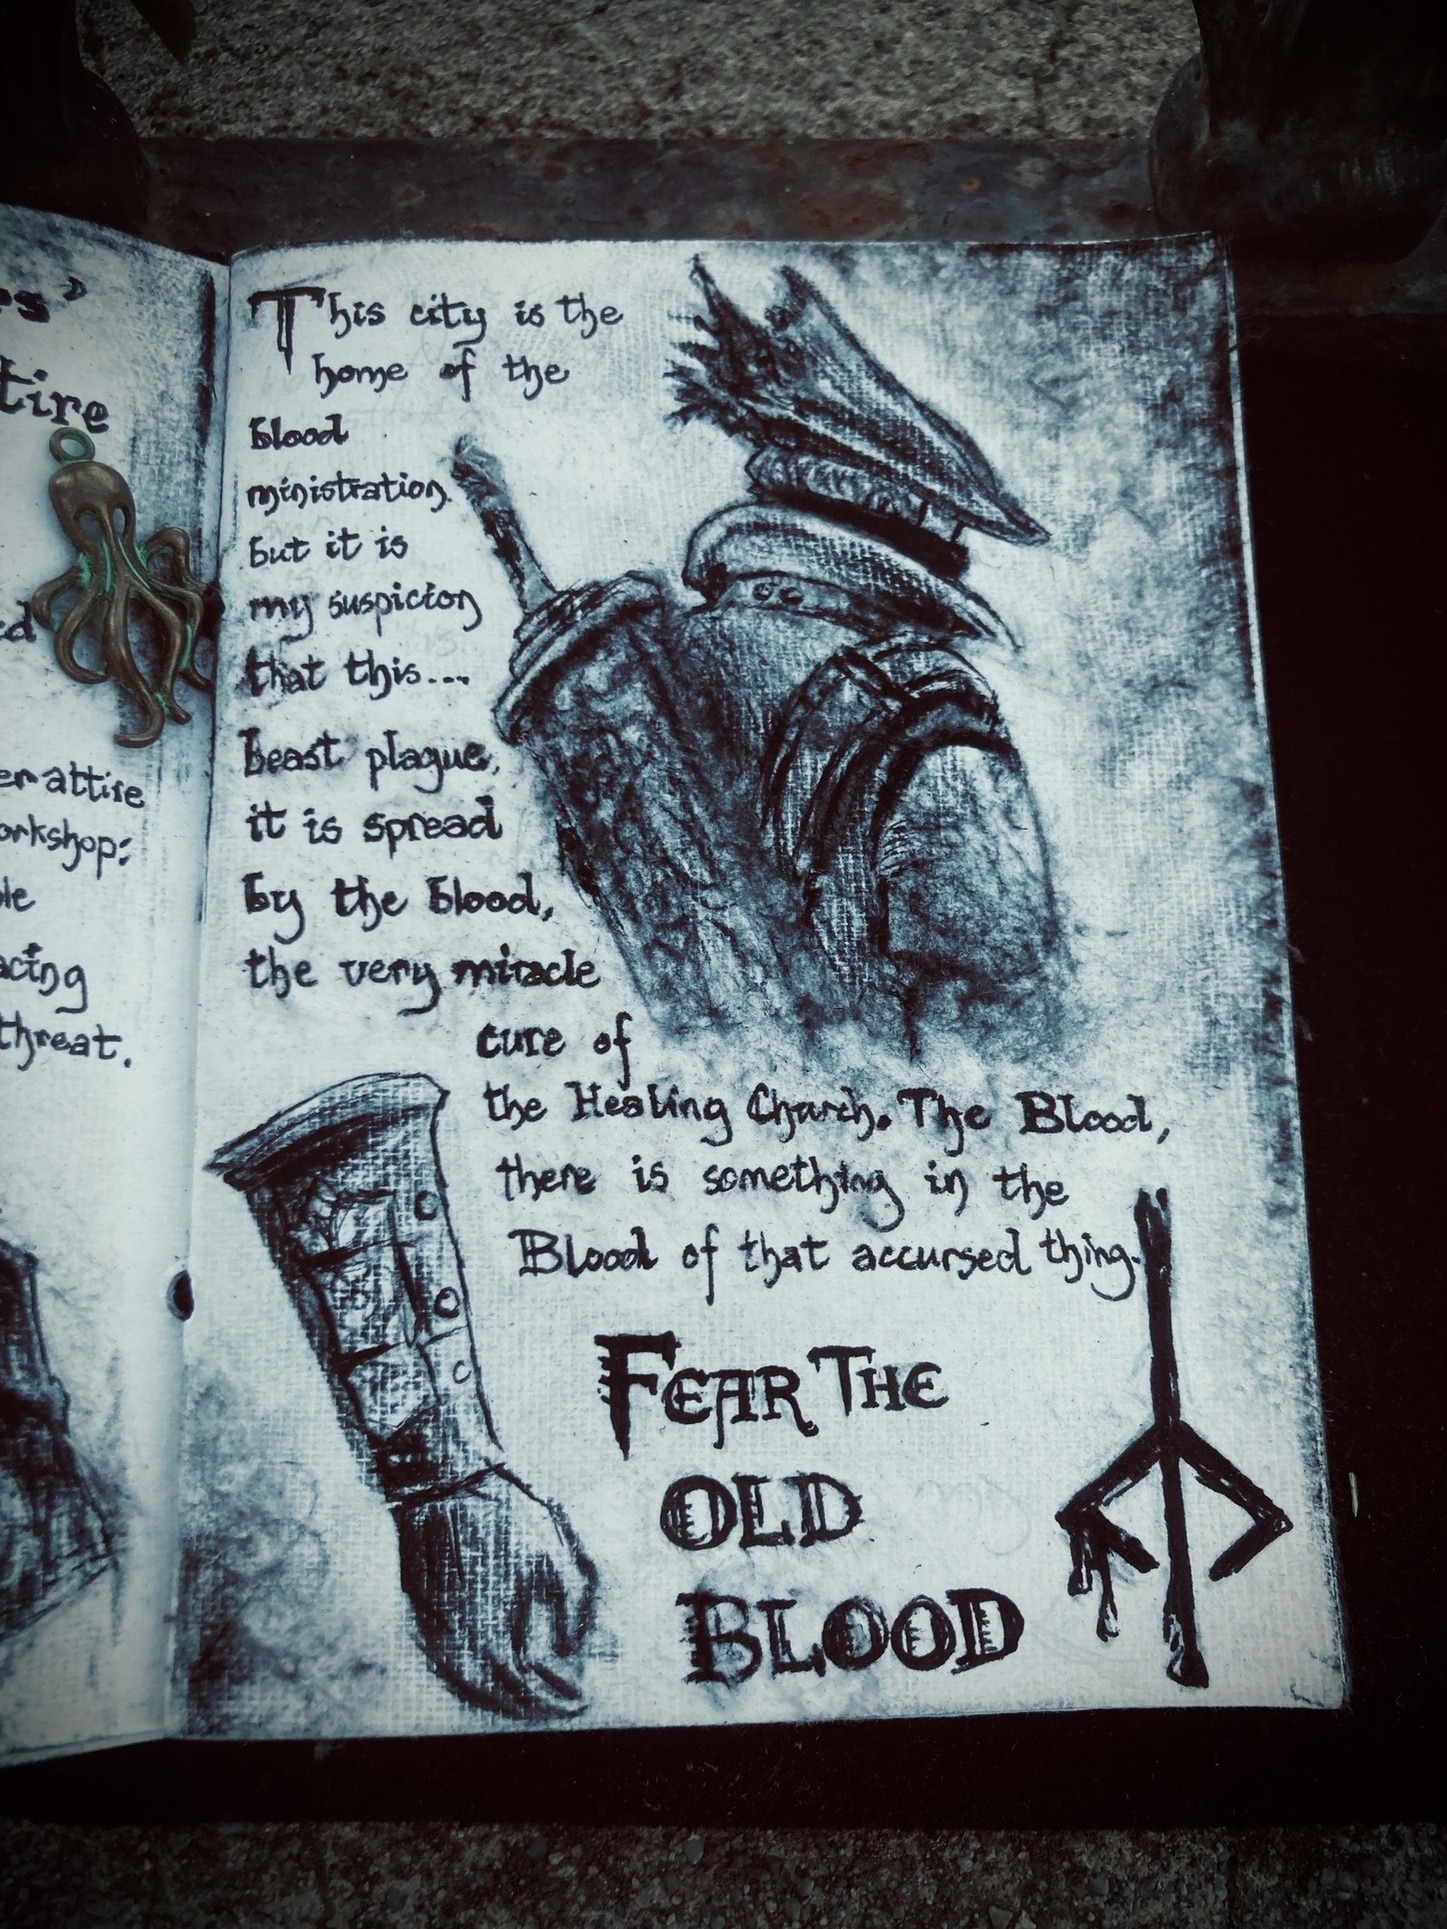 es'
tire
er attire
orkshop:
le
acing
threat.
This city is the
home of the
blood
ministration
but it is
my suspicion
that this...
beast plague,
it is spread
by the blood,
the very miracle
cure of
the Healing Church. The Blood,
there is something in the
Blood of that accursed thing.
FEAR THE
OLD
BLOOD